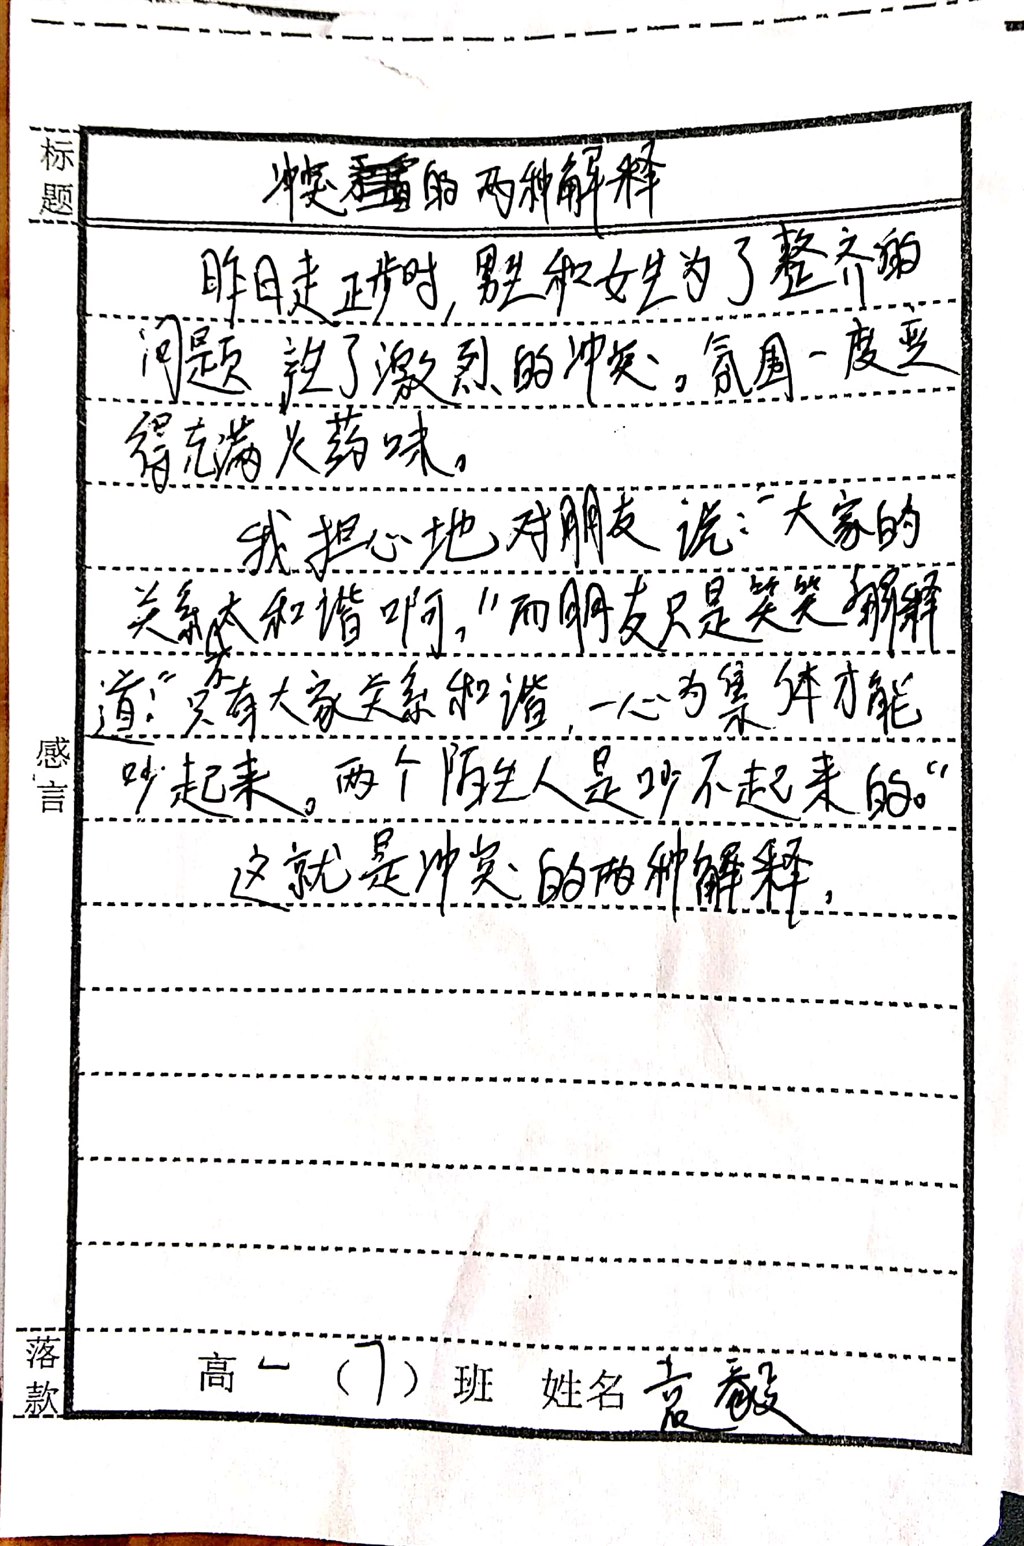 标题
冲突的两种解释
昨日走正步时,男生和女生为了整齐的
问题 了激烈的冲突。氛围一度变
得充满火药味。
我担心地对朋友说:“大家的
关系不太和谐啊。”而朋友只是笑笑解释
道:“只有大家关系和谐,一心为集体才能
吵起来。两个陌生人是吵不起来的。“
这就是冲突的两种解释.
感言
落款
高一(7)班 姓名 袁毅